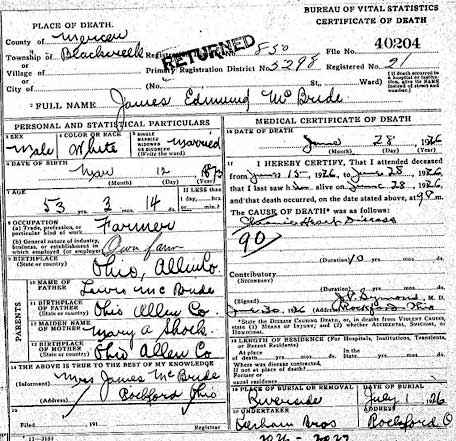 BUREAU OF VITAL STATISTICS
CERTIFICATE OF DEATH
PLACE OF DEATH.
County of Mercer
Township of Blackcreek Registration District No. 850 File No. 40204
Village of Primary Registration District No. 5298 Registered No. 21
City of (No. St., Ward)
(If death occurred in a hospital or institution, give its NAME instead of street and number.)
RETURNED
2 FULL NAME James Edmund McBride
PERSONAL AND STATISTICAL PARTICULARS
3 SEX Male
4 COLOR OR RACE White
5 SINGLE MARRIED WIDOWED OR DIVORCED (Write the word) Married
6 DATE OF BIRTH Mar 12 1873
(Month) (Day) (Year)
7 AGE 53 yrs. 3 mos. 14 ds.
If LESS than 1 day, hrs. or min.?
8 OCCUPATION
(a) Trade, profession, or particular kind of work Farmer
(b) General nature of industry, business, or establishment in which employed (or employer) Own farm
9 BIRTHPLACE (State or country) Ohio, Allen Co.
PARENTS
10 NAME OF FATHER Lewis McBride
11 BIRTHPLACE OF FATHER (State or country) Ohio Allen Co.
12 MAIDEN NAME OF MOTHER Mary A Shock.
13 BIRTHPLACE OF MOTHER (State or country) Ohio Allen Co
14 THE ABOVE IS TRUE TO THE BEST OF MY KNOWLEDGE
(Informant) Mrs James McBride
(Address) Rockford Ohio
15
Filed 191
Registrar
11-3184
MEDICAL CERTIFICATE OF DEATH
16 DATE OF DEATH
June 28 1926
(Month) (Day) (Year)
17 I HEREBY CERTIFY, That I attended deceased
from June 15, 1926, to June 28, 1926,
that I last saw him alive on June 28, 1926
and that death occurred, on the date stated above, at 9 P m.
The CAUSE OF DEATH* was as follows:
Chronic Heart Disease
90
(Duration) 10 yrs. mos. ds.
Contributory
(SECONDARY)
(Duration) yrs. mos. ds.
(Signed) Symons, M. D.
June 30, 1926 (Address) Rockford Ohio
*State the DISEASE CAUSING DEATH, or, in deaths from VIOLENT CAUSES, state (1) MEANS OF INJURY; and (2) whether ACCIDENTAL, SUICIDAL, or HOMICIDAL.
18 LENGTH OF RESIDENCE (For Hospitals, Institutions, Transients, or Recent Residents)
At place of death yrs. mos. ds. In the State yrs. mos. ds.
Where was disease contracted,
if not at place of death?
Former or
usual residence
19 PLACE OF BURIAL OR REMOVAL Riverside
DATE OF BURIAL July 1, 1926
20 UNDERTAKER
ADDRESS Rockford O